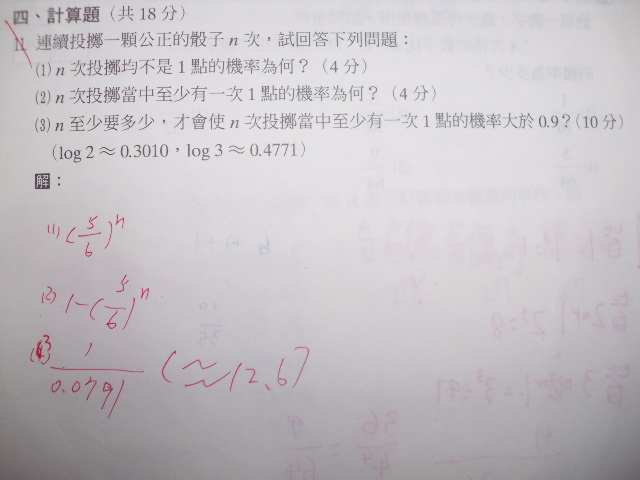 四、計算題（共 18 分）
11. 連續投擲一顆公正的骰子 n 次，試回答下列問題：
(1) n 次投擲均不是 1 點的機率為何？（4 分）
(2) n 次投擲當中至少有一次 1 點的機率為何？（4 分）
(3) n 至少要多少，才會使 n 次投擲當中至少有一次 1 點的機率大於 0.9？(10 分)
（log 2 ≈ 0.3010，log 3 ≈ 0.4771）
解：
(1) (5/6)^n
(2) 1-(5/6)^n
(3) 1/0.0791 (≈12.6)